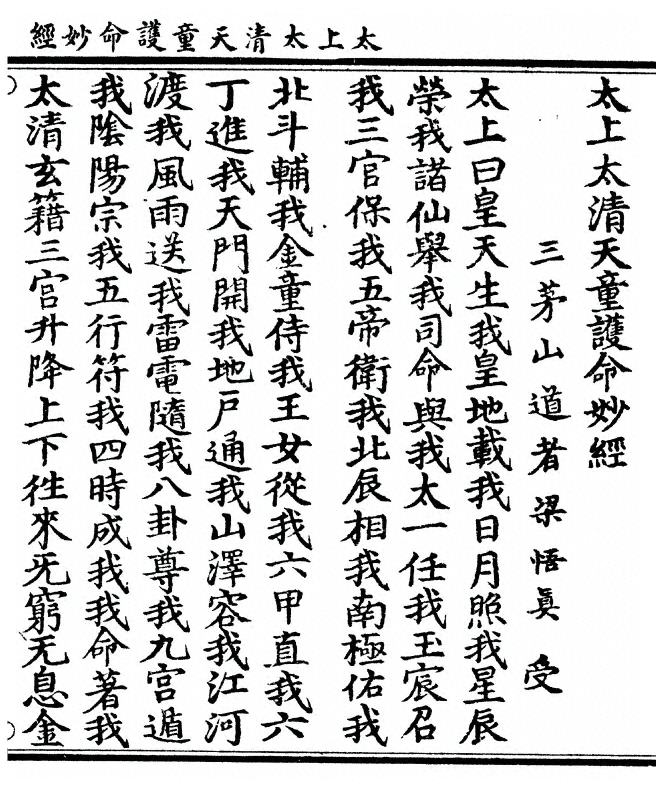 太上太清天童護命妙經
太上太清天童護命妙經
三茅山道者梁悟眞受
太上曰皇天生我皇地載我日月照我星辰
榮我諸仙舉我司命與我太一任我玉宸召
我三官保我五帝衛我北辰相我南極佑我
北斗輔我金童侍我王女從我六甲直我六
丁進我天門開我地户通我山澤容我江河
渡我風雨送我雷電隨我八卦尊我九宮遁
我陰陽宗我五行符我四時成我我命著我
太清玄籍三宮升降上下徃來旡窮旡息金